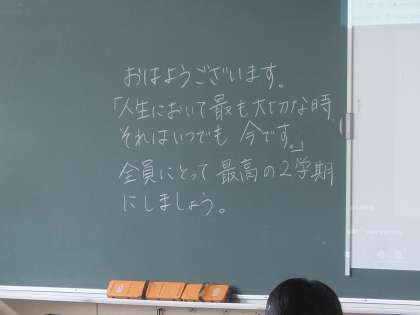 おはようございます。
「人生において最も大切な時
それはいつでも 今です。」
全員にとって 最高の2学期
にしましょう。